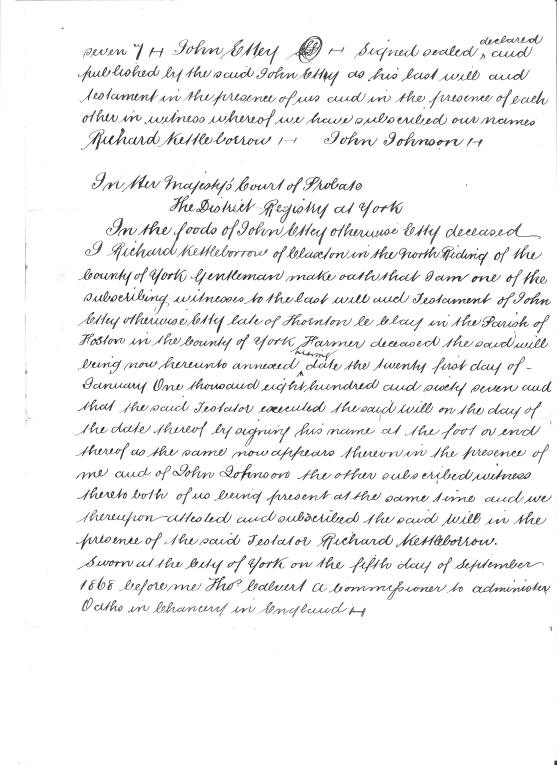 seven 7 H John Ettey LS H Signed sealed declared and
published by the said John Ettey as his last will and
testament in the presence of us and in the presence of each
other in witness whereof we have subscribed our names
Richard Kettleborrow H John Johnson H
In Her Majesty's Court of Probate
The District Registry at York
In the goods of John Ettey otherwise Etty deceased
I Richard Kettleborrow of Claxton in the North Riding of the
County of York Gentleman make oath that I am one of the
subscribing witnesses to the last will and Testament of John
Ettey otherwise Etty late of Thornton le Clay in the Parish of
Foston in the County of York Farmer deceased the said will
being now hereunto annexed bearing date the twenty first day of
January One thousand eight hundred and sixty seven and
that the said Testator executed the said will on the day of
the date thereof by signing his name at the foot or end
thereof as the same now appears thereon in the presence of
me and of John Johnson the other subscribed witness
thereto both of us being present at the same time and we
thereupon attested and subscribed the said will in the
presence of the said Testator Richard Kettleborrow.
Sworn at the City of York on the fifth day of September
1868 before me Thos Calvert a commissioner to administer
Oaths in Chancery in England H